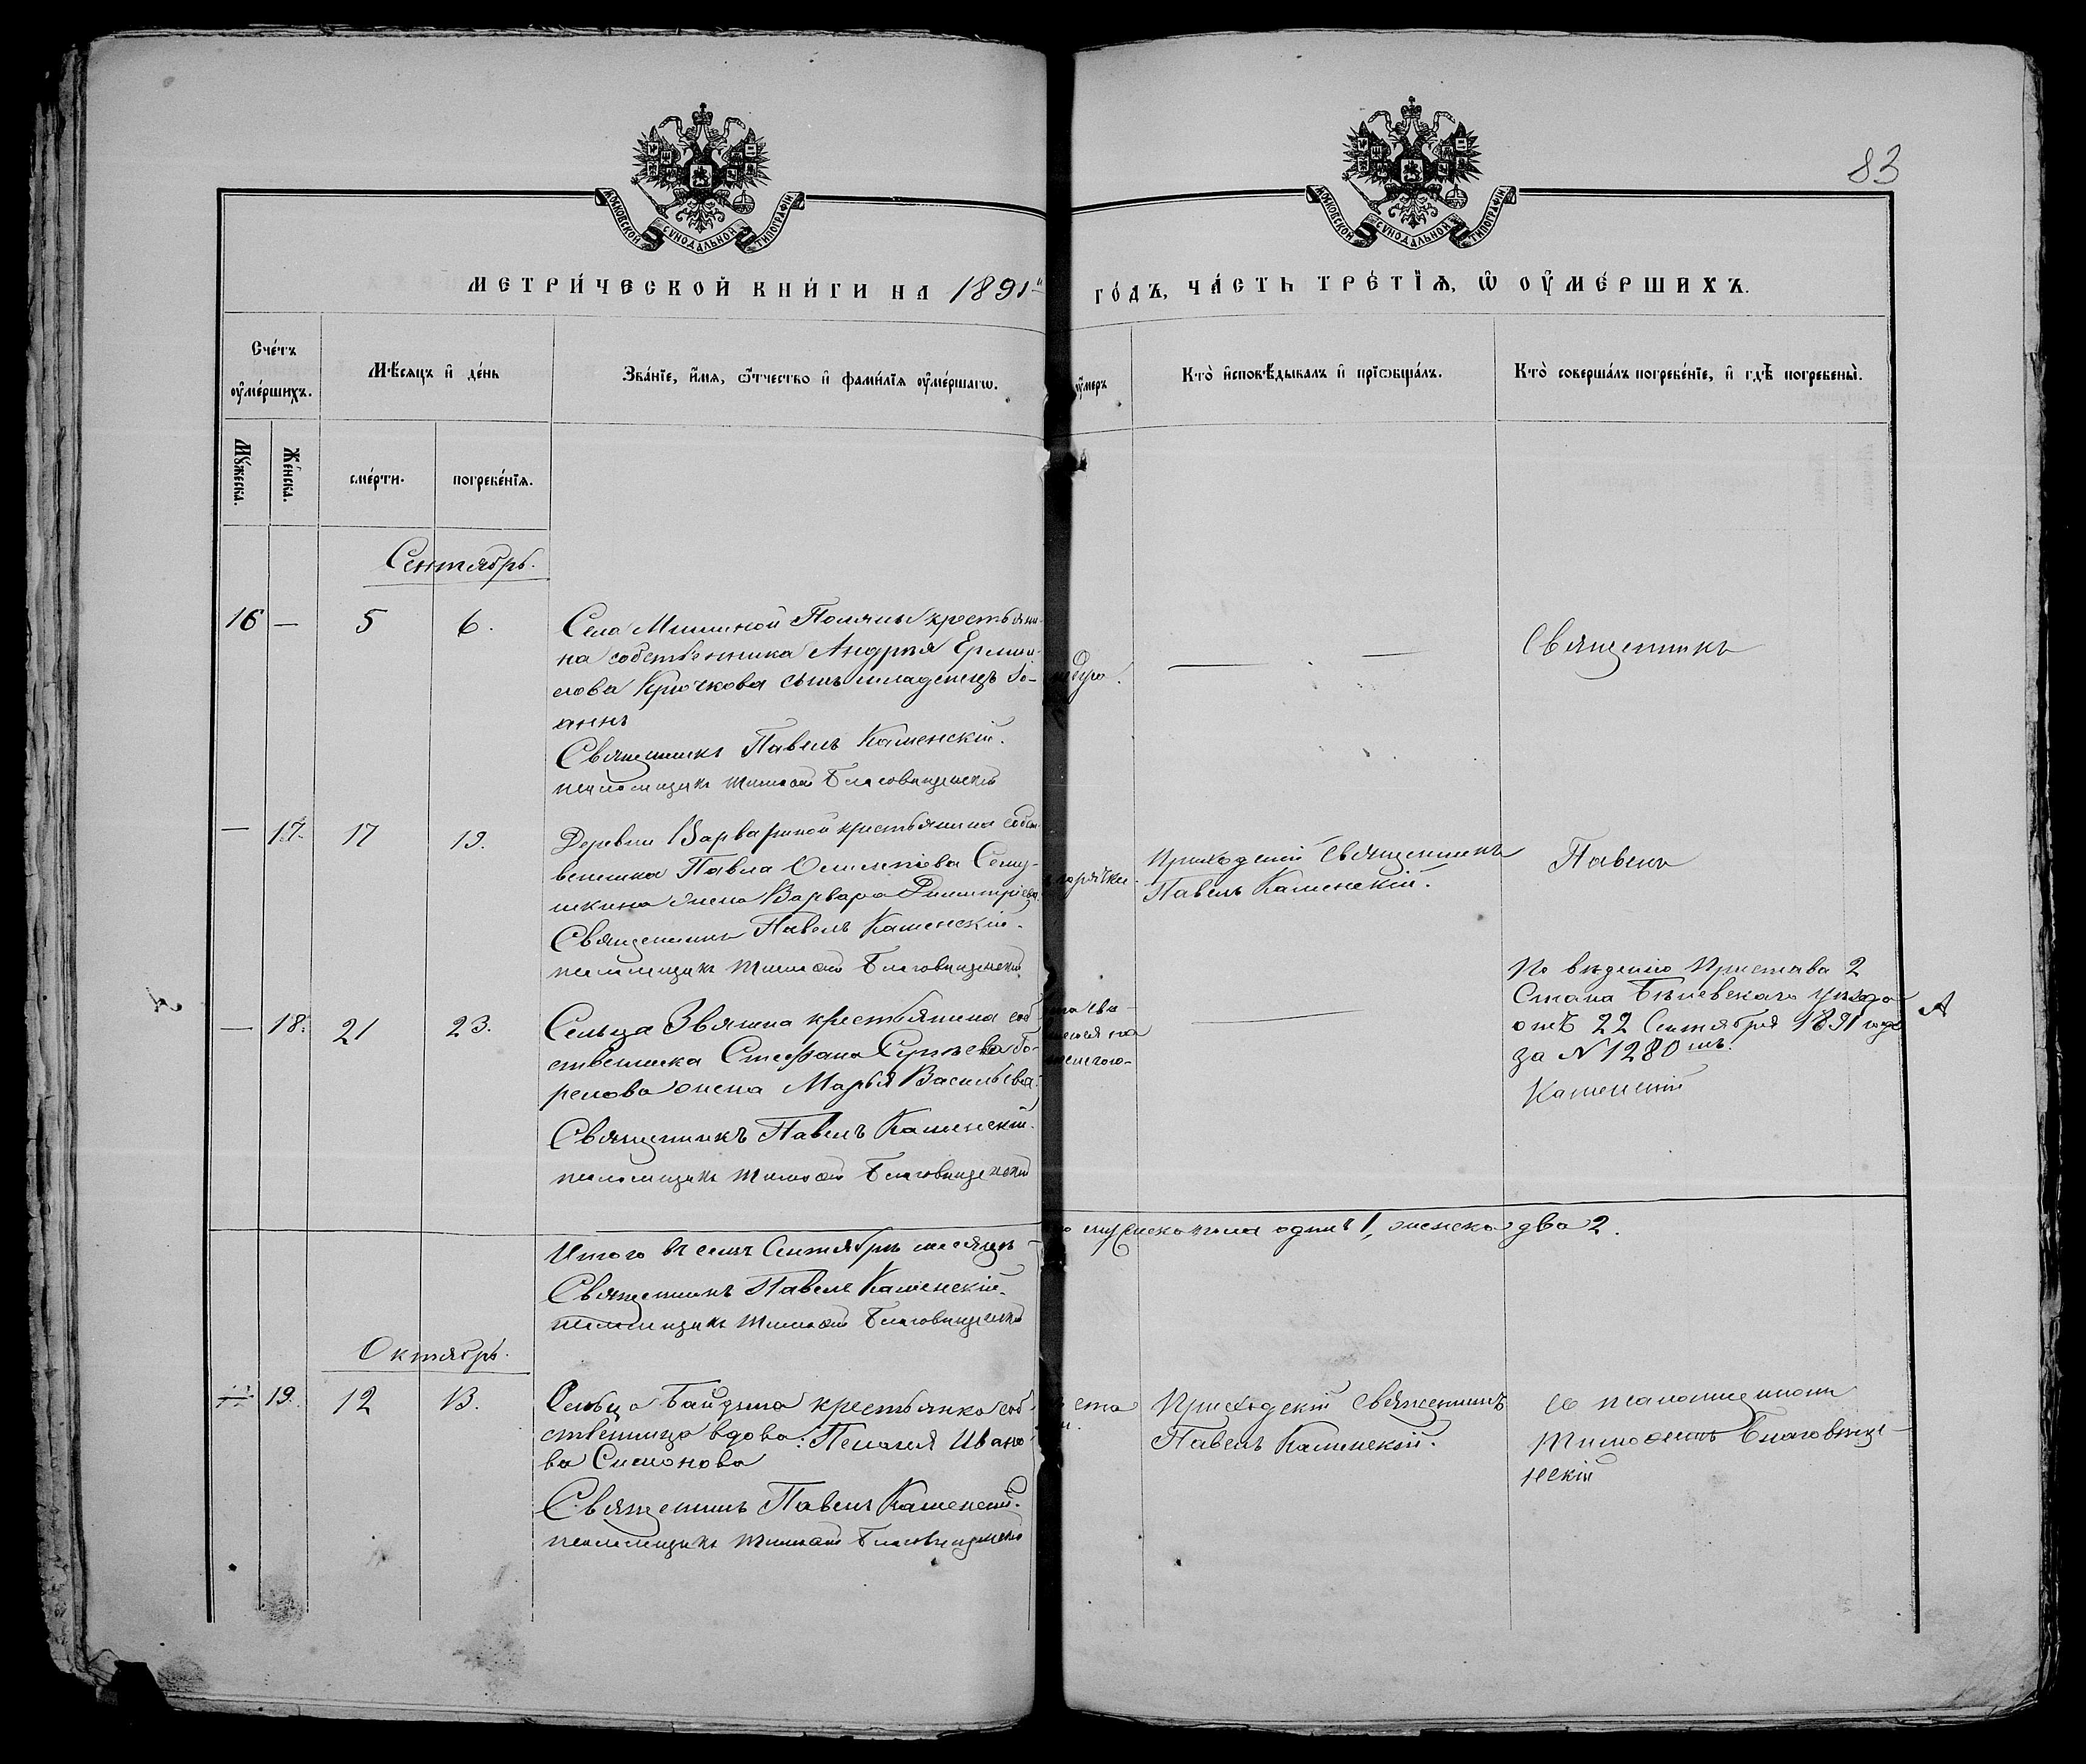 83
МОСКОВСКОЙ СУНОДАЛЬНОЙ ТИПОГРАФІИ
МОСКОВСКОЙ СУНОДАЛЬНОЙ ТИПОГРАФІИ
МЕТРИ́ЧЕСКОЙ КНИ́ГИ НА 1891й ГО́ДЪ, ЧА́СТЬ ТРЕ́ТІѦ, Ѽ ОУ҆МЕ́РШИХЪ.
Сче́тъ оу҆ме́ршихъ.
Мѣ́сѧцъ и҆ де́нь
Зва́нїе, и҆́мѧ, ѻ҆́тчество и҆ фами́лїѧ оу҆ме́ршагѡ.
оу҆́меръ
Кто̀ и҆сповѣ́дывалъ и҆ прїѡбща́лъ.
Кто̀ соверша́лъ погребе́нїе, и҆ гдѣ̀ погребены̀.
Мꙋ́жеска.
Же́нска.
сме́рти.
погребе́нїѧ.
Сентябрь.
16 — 5 6.
Села Мишиной Поляны крестьяни-
на собственника Андрея Ермо-
лова Крючкова сынъ младенецъ Іо-
аннъ
Священникъ Павелъ Каменскій.
псаломщикъ Тимоѳей Благовѣщенскій
Священникъ
— 17. 17 19.
Деревни Варвариной крестьянина собст-
венника Павла
шкина жена Варвара Димитріева
Священникъ Павелъ Каменскій.
псаломщикъ Тимоѳей Благовѣщенскій
горячки.
Приходскій Священникъ
Павелъ Каменскій.
Павелъ
— 18. 21 23.
Сельца Звягина крестьянина соб-
ственника Стефана Сергѣева Бо-
релова жена Марья Васильева
Священникъ Павелъ Каменскій.
псаломщикъ Тимоѳей Благовѣщенскій
По вѣденію Пристава 2
Стана Бѣлевскаго уѣзда
отъ 22 Сентября 1891 года
за № 1280мъ.
А
Каменскій
Итого въ семъ Сентябрѣ мѣсяцѣ
мужеска пола одинъ 1, женска два 2.
Священникъ Павелъ Каменскій.
псаломщикъ Тимоѳей Благовѣщенскій
Октябрь.
19. 12 13.
Сельца Байдина крестьянка соб-
ственница вдова: Пелагея Ивано-
ва Симонова
Священникъ Павелъ Каменскій.
псаломщикъ Тимоѳей Благовѣщенскій
Приходскій Священникъ
Павелъ Каменскій.
съ псаломщикомъ
Тимоѳеемъ Благовѣще-
нскій